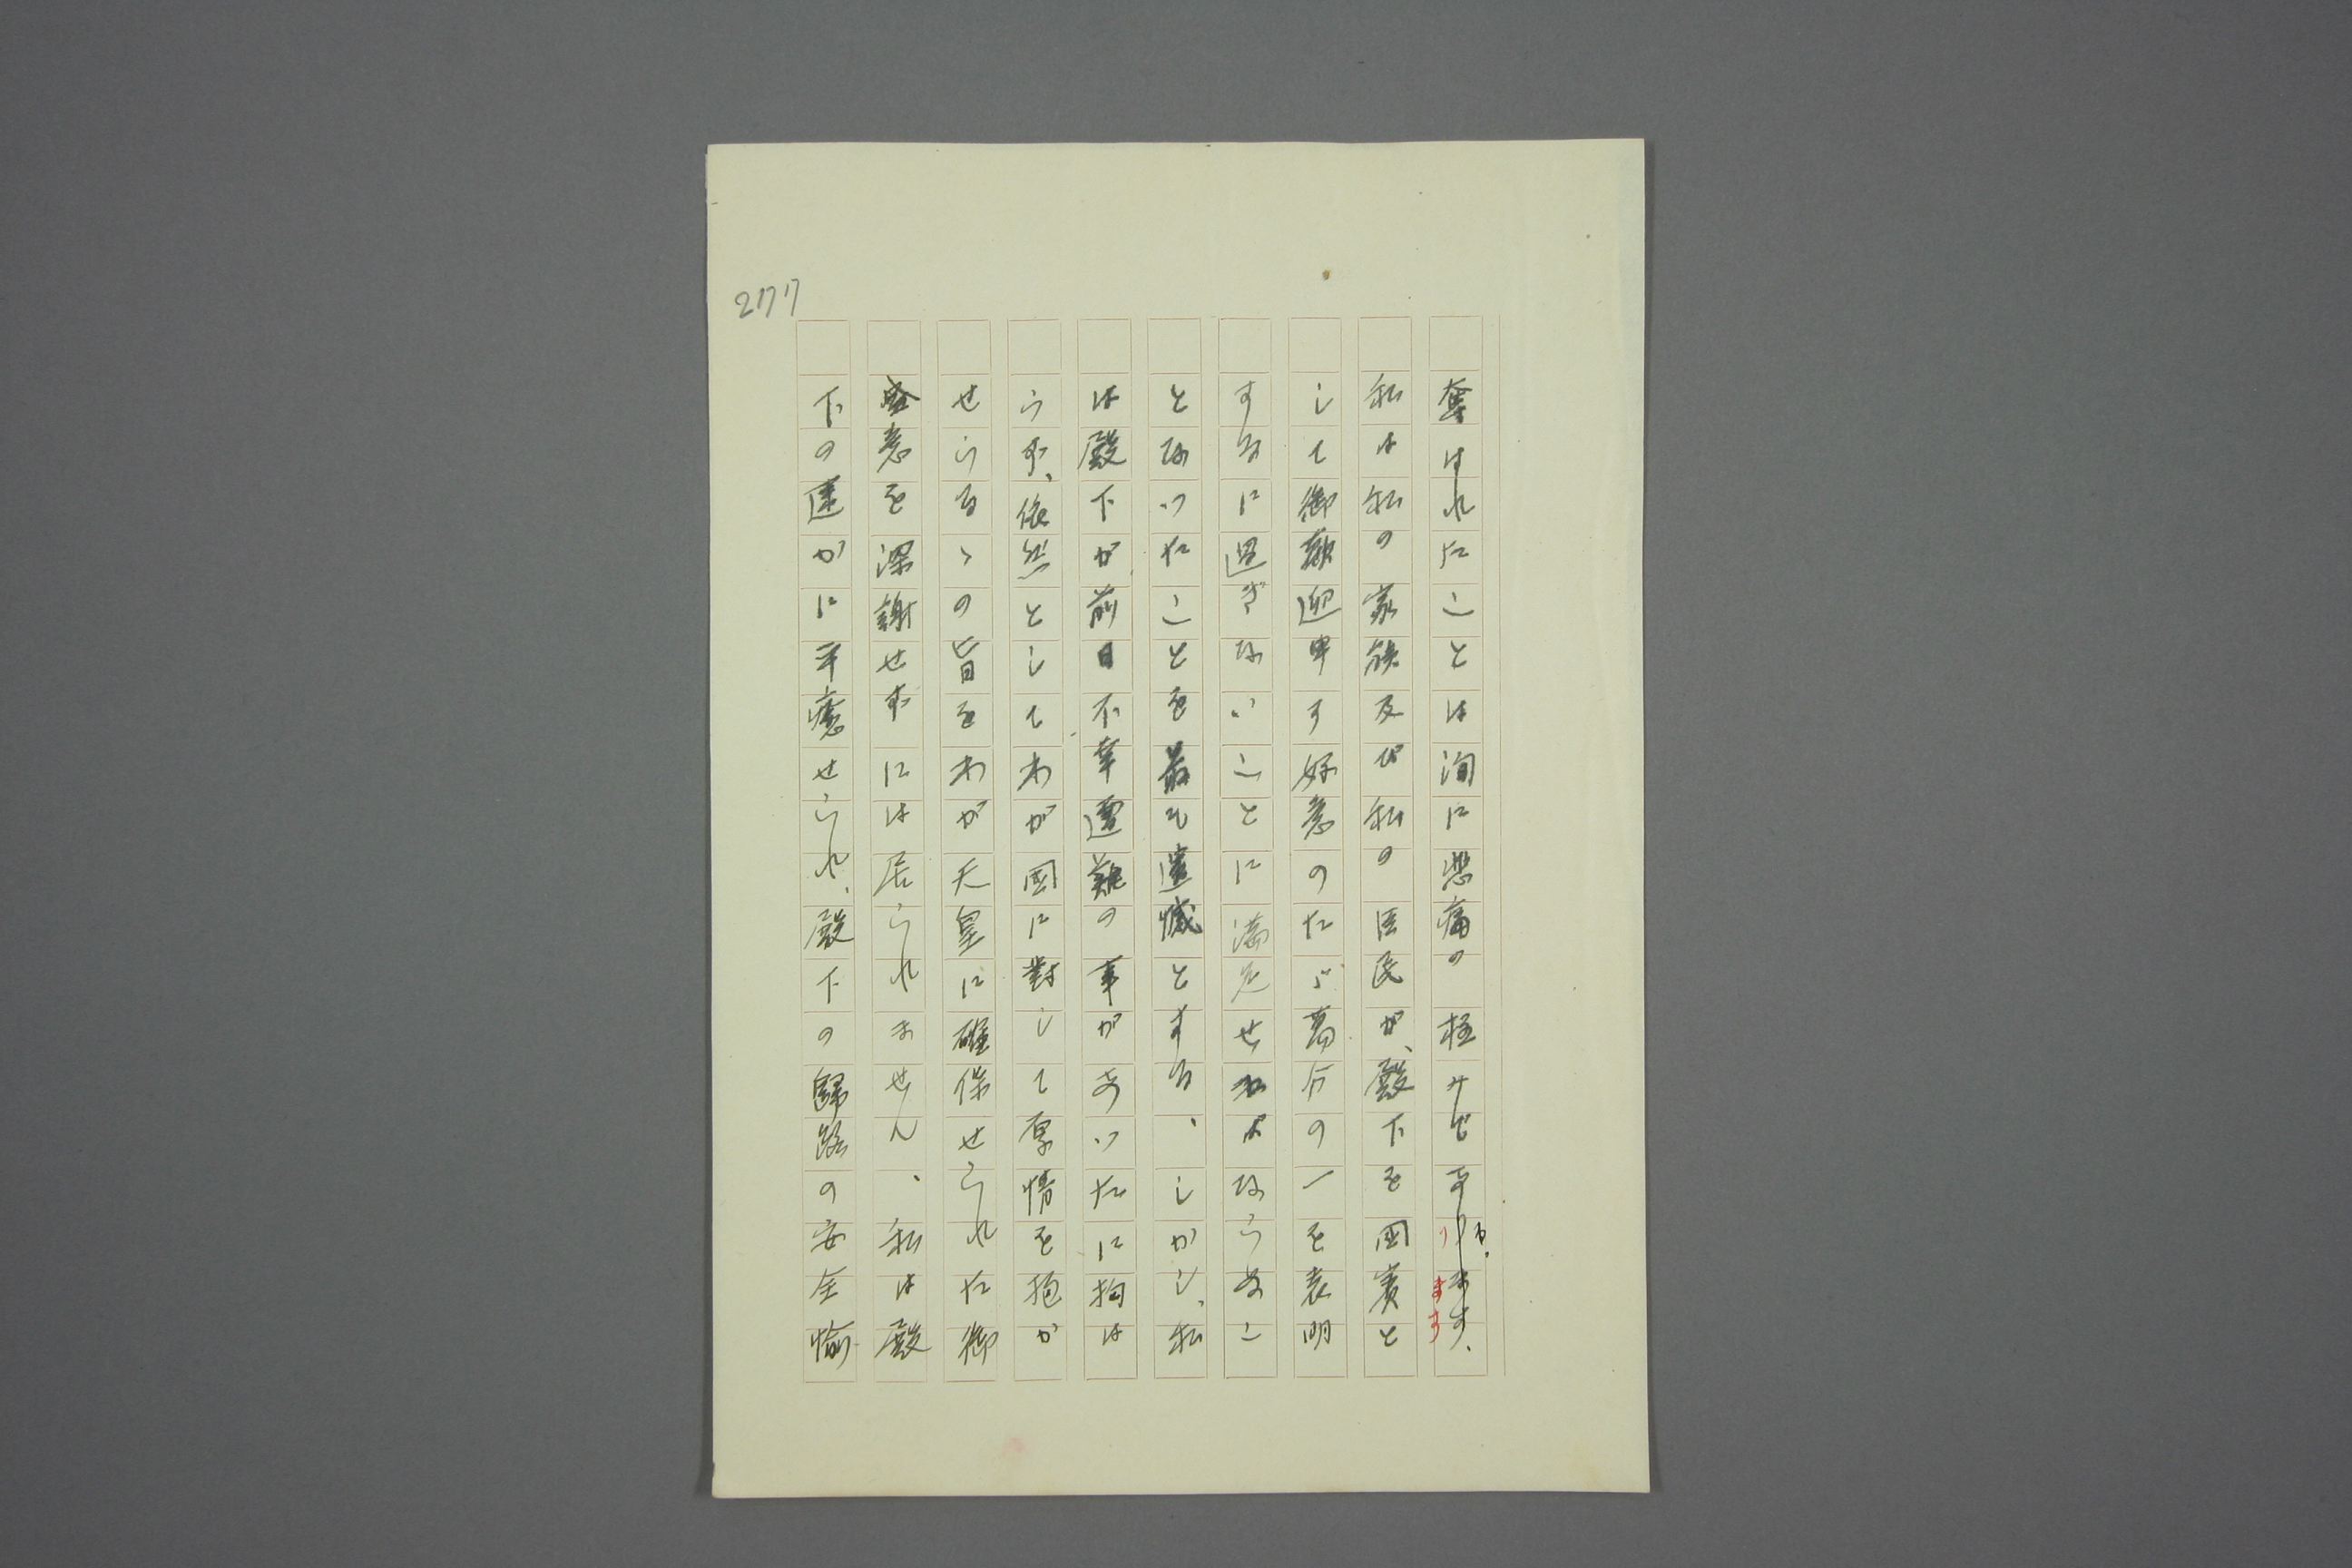 277
奪はれたことは洵に悲痛の極みであります。
私は私の家族及び私の臣民が、殿下を国賓と
して御歓迎申す好意のたゞ萬分の一を表明
するに過ぎないことに満足せねばならぬこ
となつたことを最も遺憾とする、しかし、私
は殿下が前日不幸遭難の事があつたに拘は
らず、依然としてわが国に對して厚情を抱か
せらるゝの旨をわが天皇に確保せられた御
意を深謝せずには居られません、私は殿
下の速かに平癒せられ、殿下の歸路の安全愉